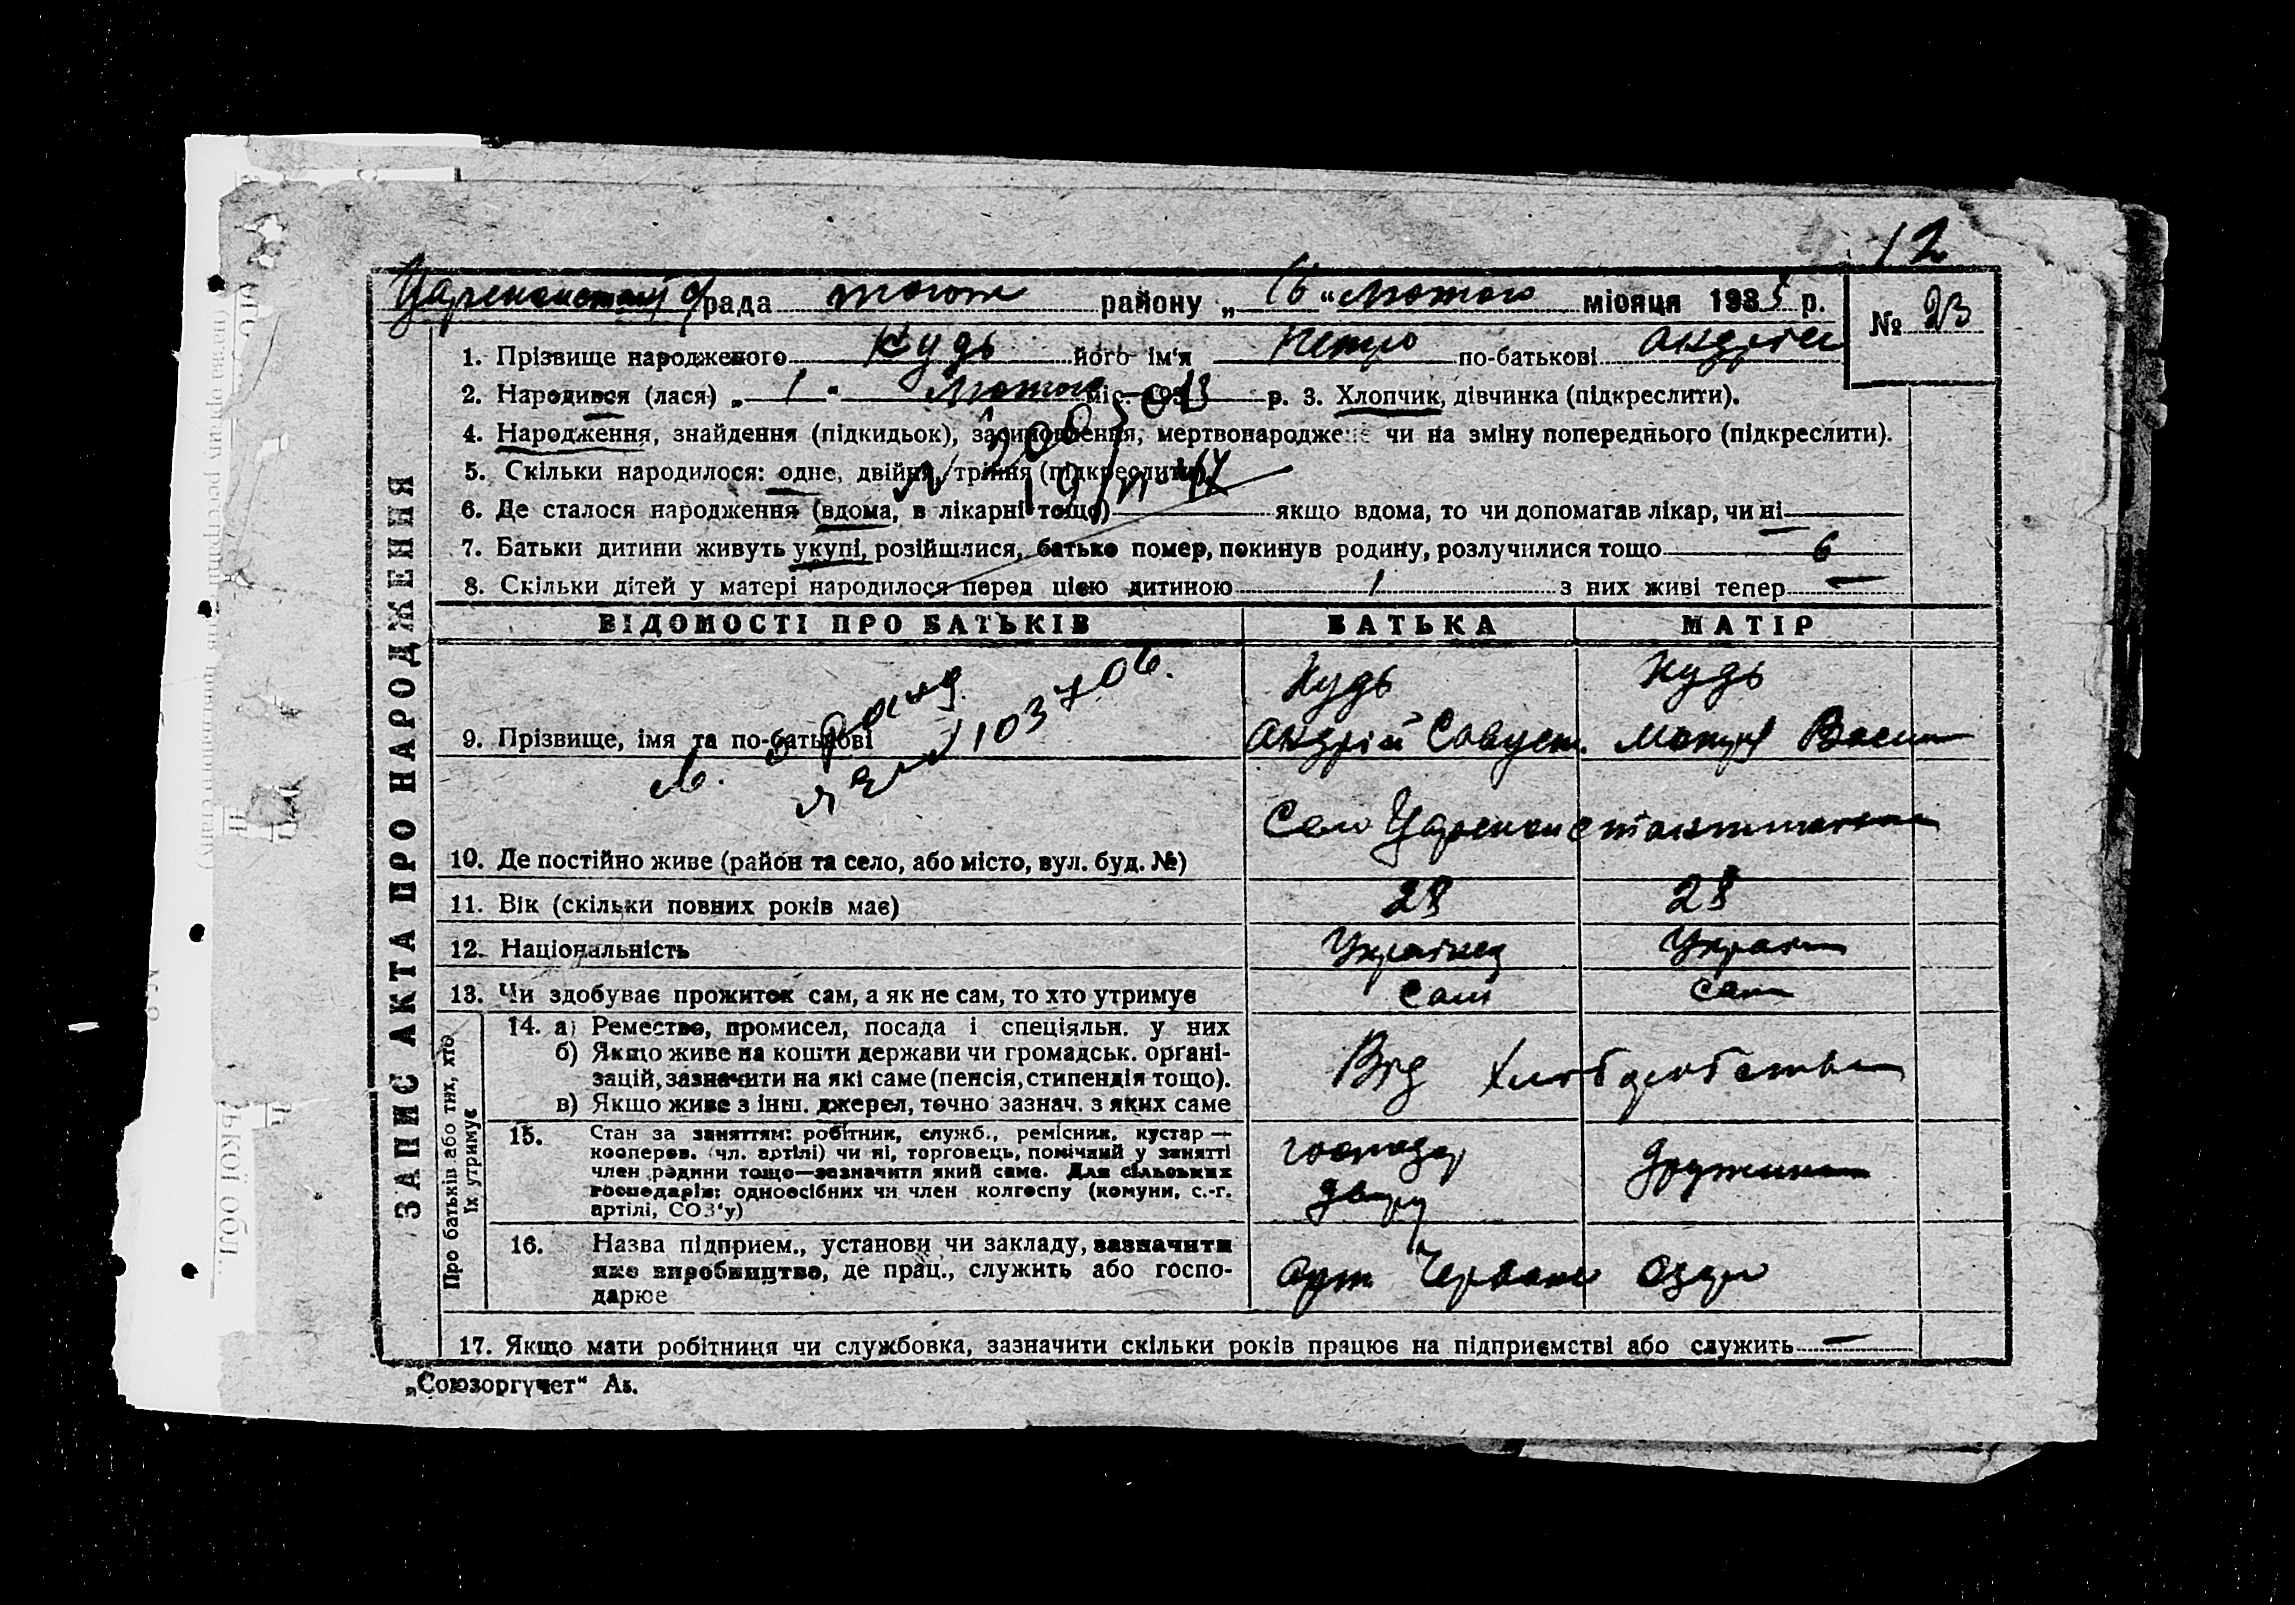 12
рада району „ 16 “ Лютого місяця 1935 р. № 23
1. Прізвище народженого Кудь його ім‘я Петро по-батькові Андрієв
2. Народився (лася) „ 1 “ Лютого міс. р. 3. Хлопчик, дівчинка (підкреслити).
4. Народження, знайдення (підкидьок), засиновлення, мертвонароджене чи на зміну попереднього (підкреслити).
5. Скільки народилося: одне, двійня, трійня (підкреслити)
6. Де сталося народження (вдома, в лікарні тощо) якщо вдома, то чи допомагав лікар, чи ні
7. Батьки дитини живуть укупі, розійшлися, батько помер, покинув родину, розлучилися тощо
8. Скільки дітей у матері народилося перед цією дитиною 1 з них живі тепер —
ЗАПИС АКТА ПРО НАРОДЖЕННЯ
ВІДОМОСТІ ПРО БАТЬКІВ БАТЬКА МАТІР
Кудь Кудь
9. Прізвище, імя та по-батькові Андрій
Село
10. Де постійно живе (район та село, або місто, вул. буд. №)
11. Вік (скільки повних років має) 28 28
12. Національність Українец Украин
13. Чи здобуває прожиток сам, а як не сам, то хто утримує Сам Сам
Про батьків або тих, хто їх утримує
14. а) Ремество, промисел, посада і спеціяльн. у них
б) Якщо живе на кошти держави чи громадськ. органі-
зацій, зазначити на які саме (пенсія, стипендія тощо).
в) Якщо живе з інш. джерел, точно зазнач. з яких саме
Від Хліборобства
15. Стан за заняттям: робітник, служб., ремісник, кустар —
кооперов. (чл. артілі) чи ні, торговець, помічний у занятті
член родини тощо—зазначити який саме. Для сільських
господарів: одноосібних чи член колгоспу (комуни, с.-г.
артілі, СОЗ‘у)
господар
двору
Дружина
16. Назва підприєм., установи чи закладу, зазначити
яке виробництво, де прац., служить або госпо-
дарює
Арт.
17. Якщо мати робітниця чи службовка, зазначити скільки років працює на підприємстві або служить —
„Союзоргучет“ Аз.